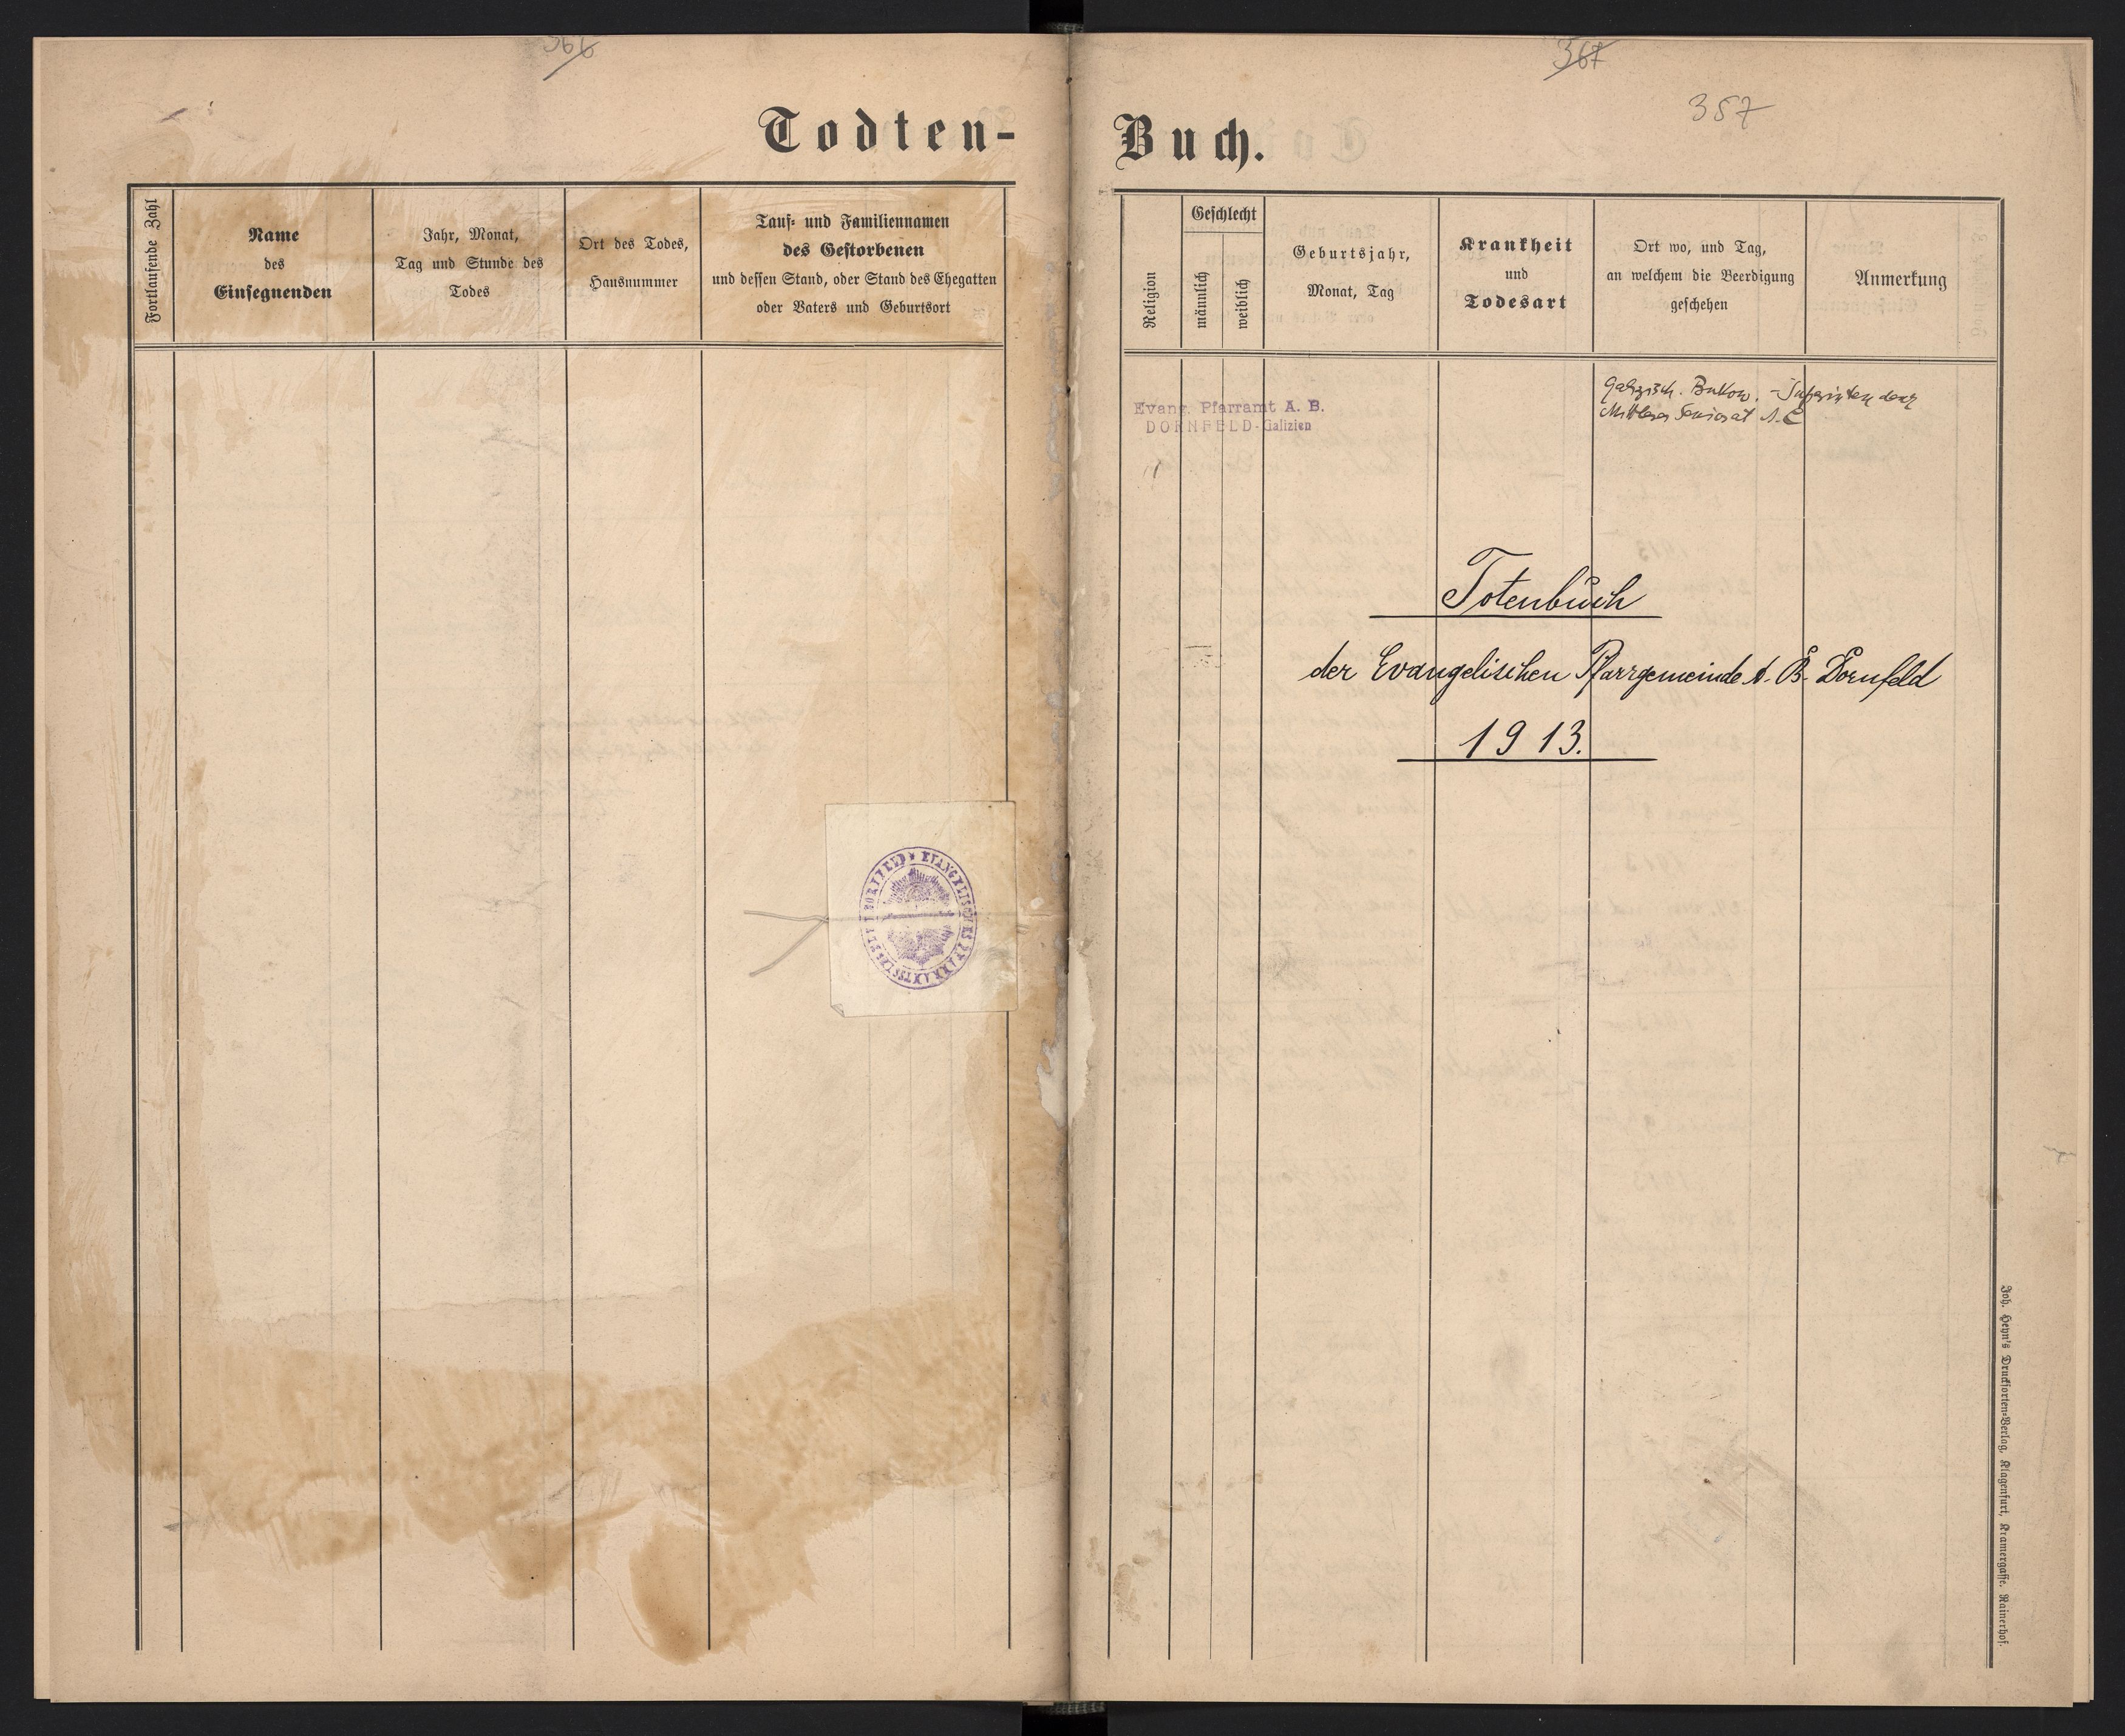 366
Todten-
Fortlaufende Zahl
Name
des
Einsegnenden
Jahr, Monat,
Tag und Stunde des
Todes
Ort des Todes,
Hausnummer
Tauf- und Familiennamen
des Gestorbenen
und dessen Stand, oder Stand des Ehegatten
oder Vaters und Geburtsort
367
357
Buch.
Religion
Geschlecht
männlich
weiblich
Geburtsjahr,
Monat, Tag
Krankheit
und
Todesart
Ort wo, und Tag,
an welchem die Beerdigung
geschehen
Anmerkung
Evang. Pfarramt A. B.
DORNFELD-Galizien
Galizisch. Bukow. - Superintendenz
Mittleres Seniorat A.
Totenbuch
der Evangelischen Pfarrgemeinde A. B. Dornfeld
1913.
Joh. Heyn's Drucksorten-Verlag, Klagenfurt, Kramergasse, Rainerhof.